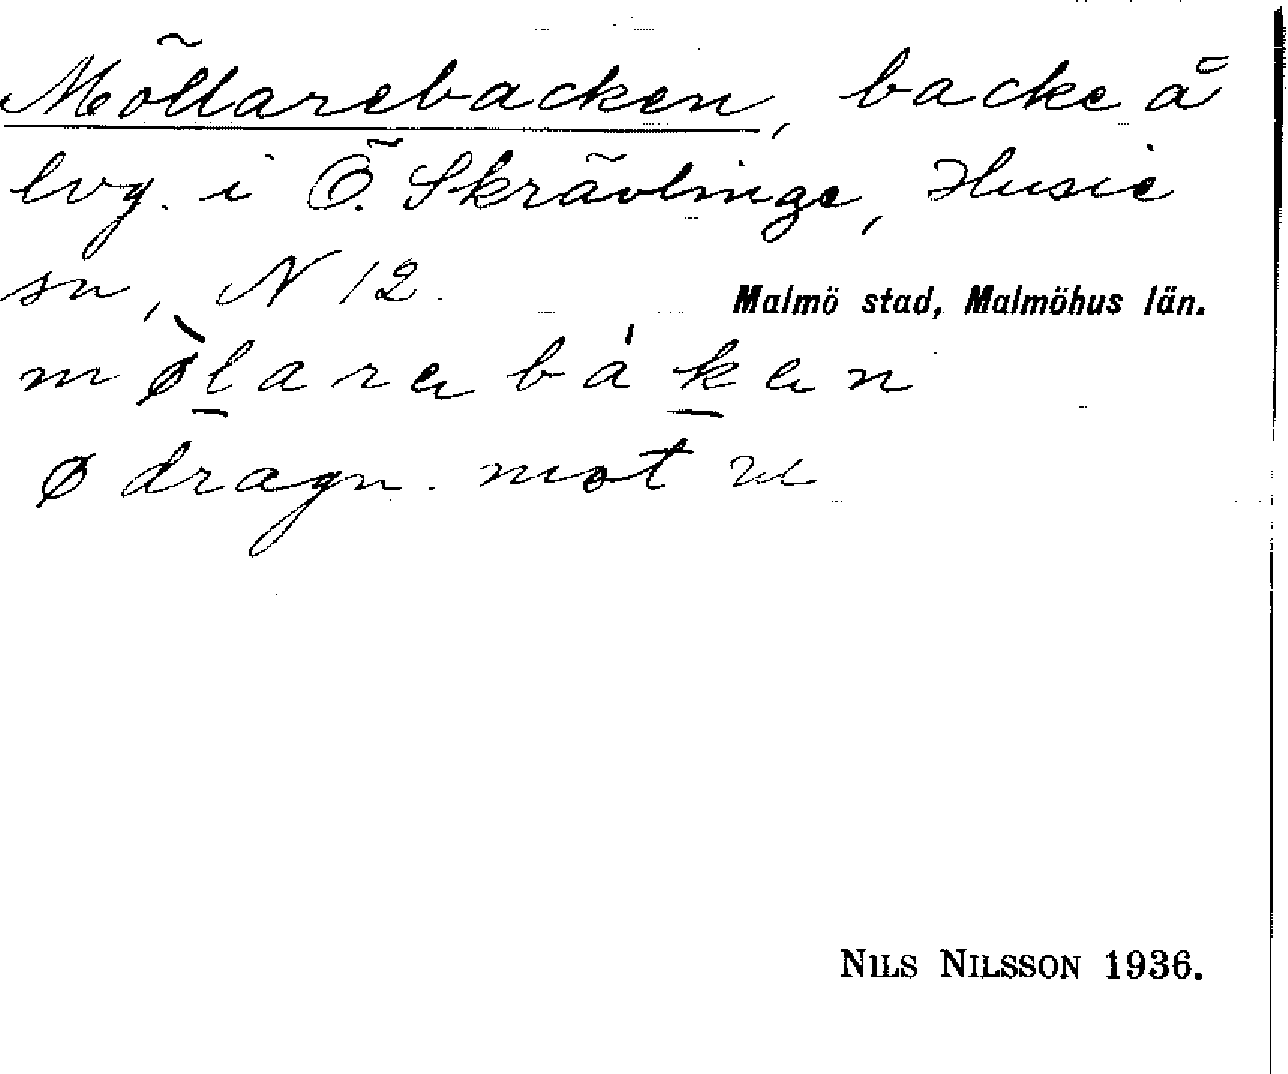 Möllarebacken, backe å
lvg. i Ö. Skrävlinge, Husie
sn, N 12.
Malmö stad, Malmöhus län.
mø̀larabákan
ø dragn. mot
NILS NILSSON 1936.